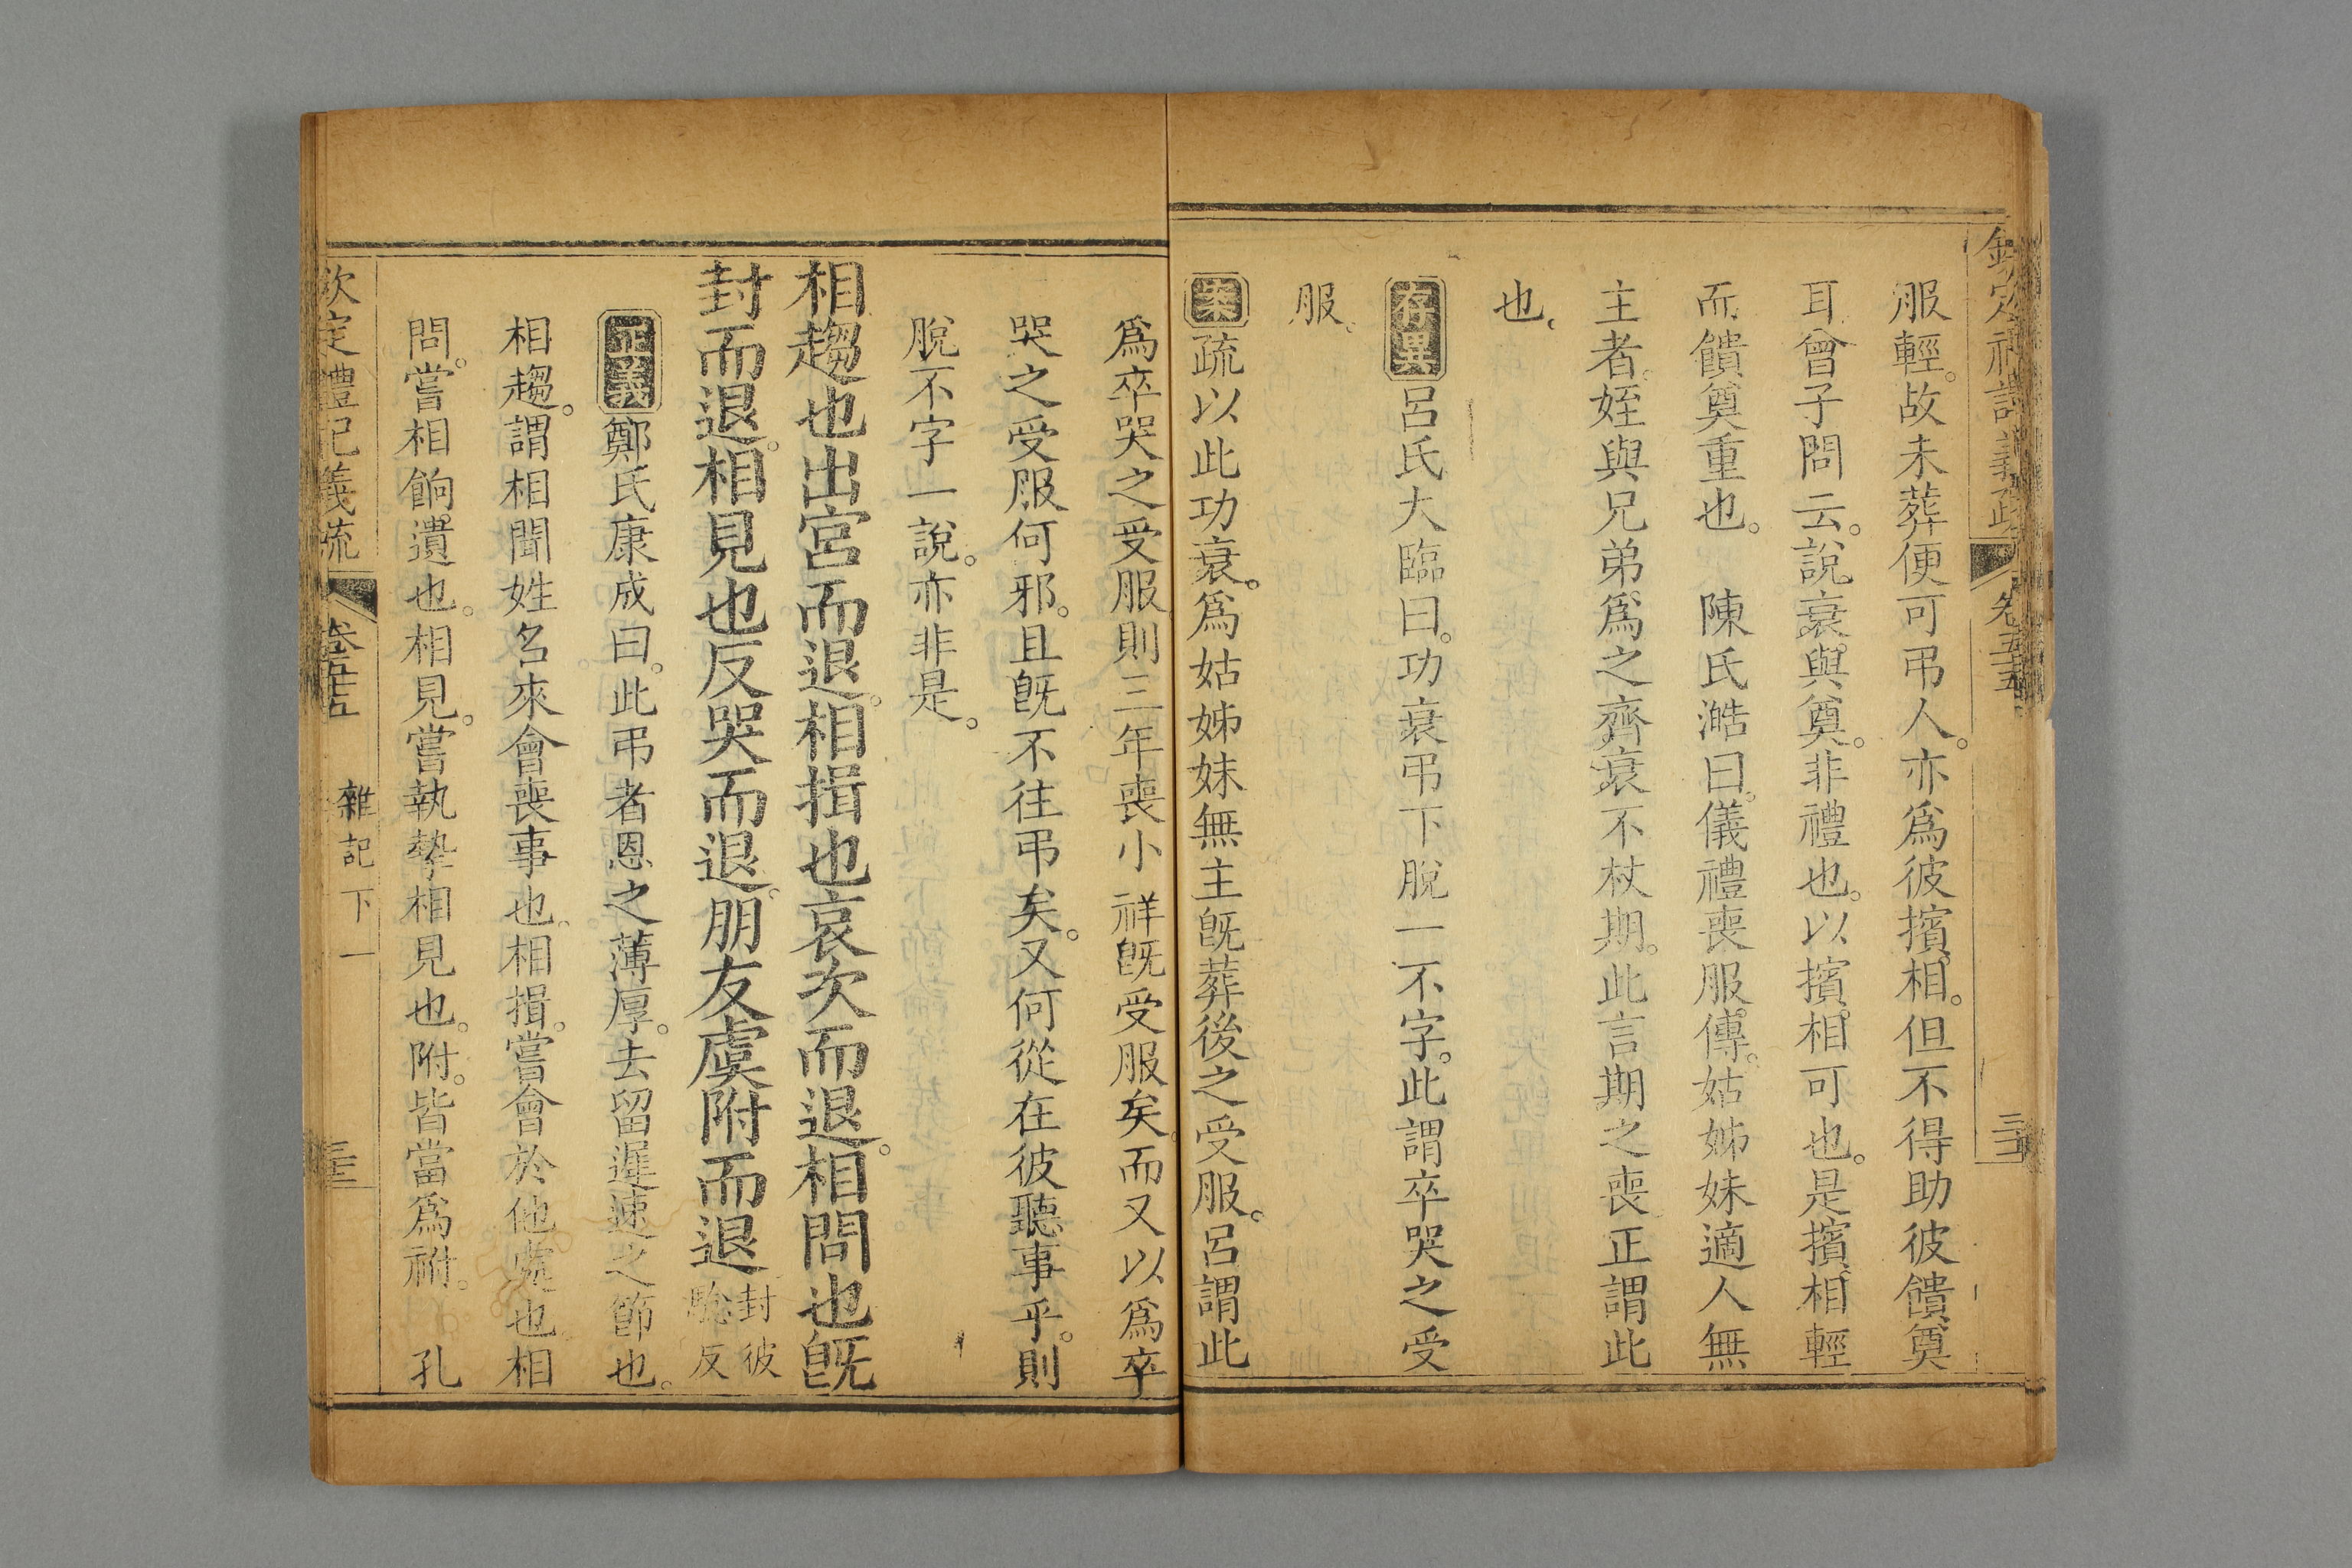 欽定禮記義疏 卷五十五
服輕。故未葬便可弔人。亦爲彼擯相。但不得助彼饋奠
耳曾子問云。說衰與奠。非禮也。以擯相可也。是擯相輕
而饋奠重也。 陳氏澔曰。儀禮喪服傳。姑姊妹適人無
主者。姪與兄弟爲之齊衰不杖期。此言期之喪正謂此
也。
存異 呂氏大臨曰。功衰弔下脫一不字。此謂卒哭之受
服。
案 疏以此功衰。爲姑姊妹無主旣葬後之受服。呂謂此
爲卒哭之受服則三年喪小祥旣受服矣。而又以爲卒
哭之受服何邪。且旣不往弔矣。又何從在彼聽事乎。則
脫不字一說。亦非是。
相趨也出宮而退。相揖也哀次而退。相問也旣
封而退。相見也反哭而退。朋友虞附而退 封彼
騐反
正義 鄭氏康成曰。此弔者恩之薄厚。去留遲速之節也。
相趨。謂相聞姓名來會喪事也。相揖。嘗會於他處也相
問。嘗相餉遺也。相見。嘗執摯相見也。附。皆當爲祔。 孔
欽定禮記義疏 卷五十五 雜記下一 三